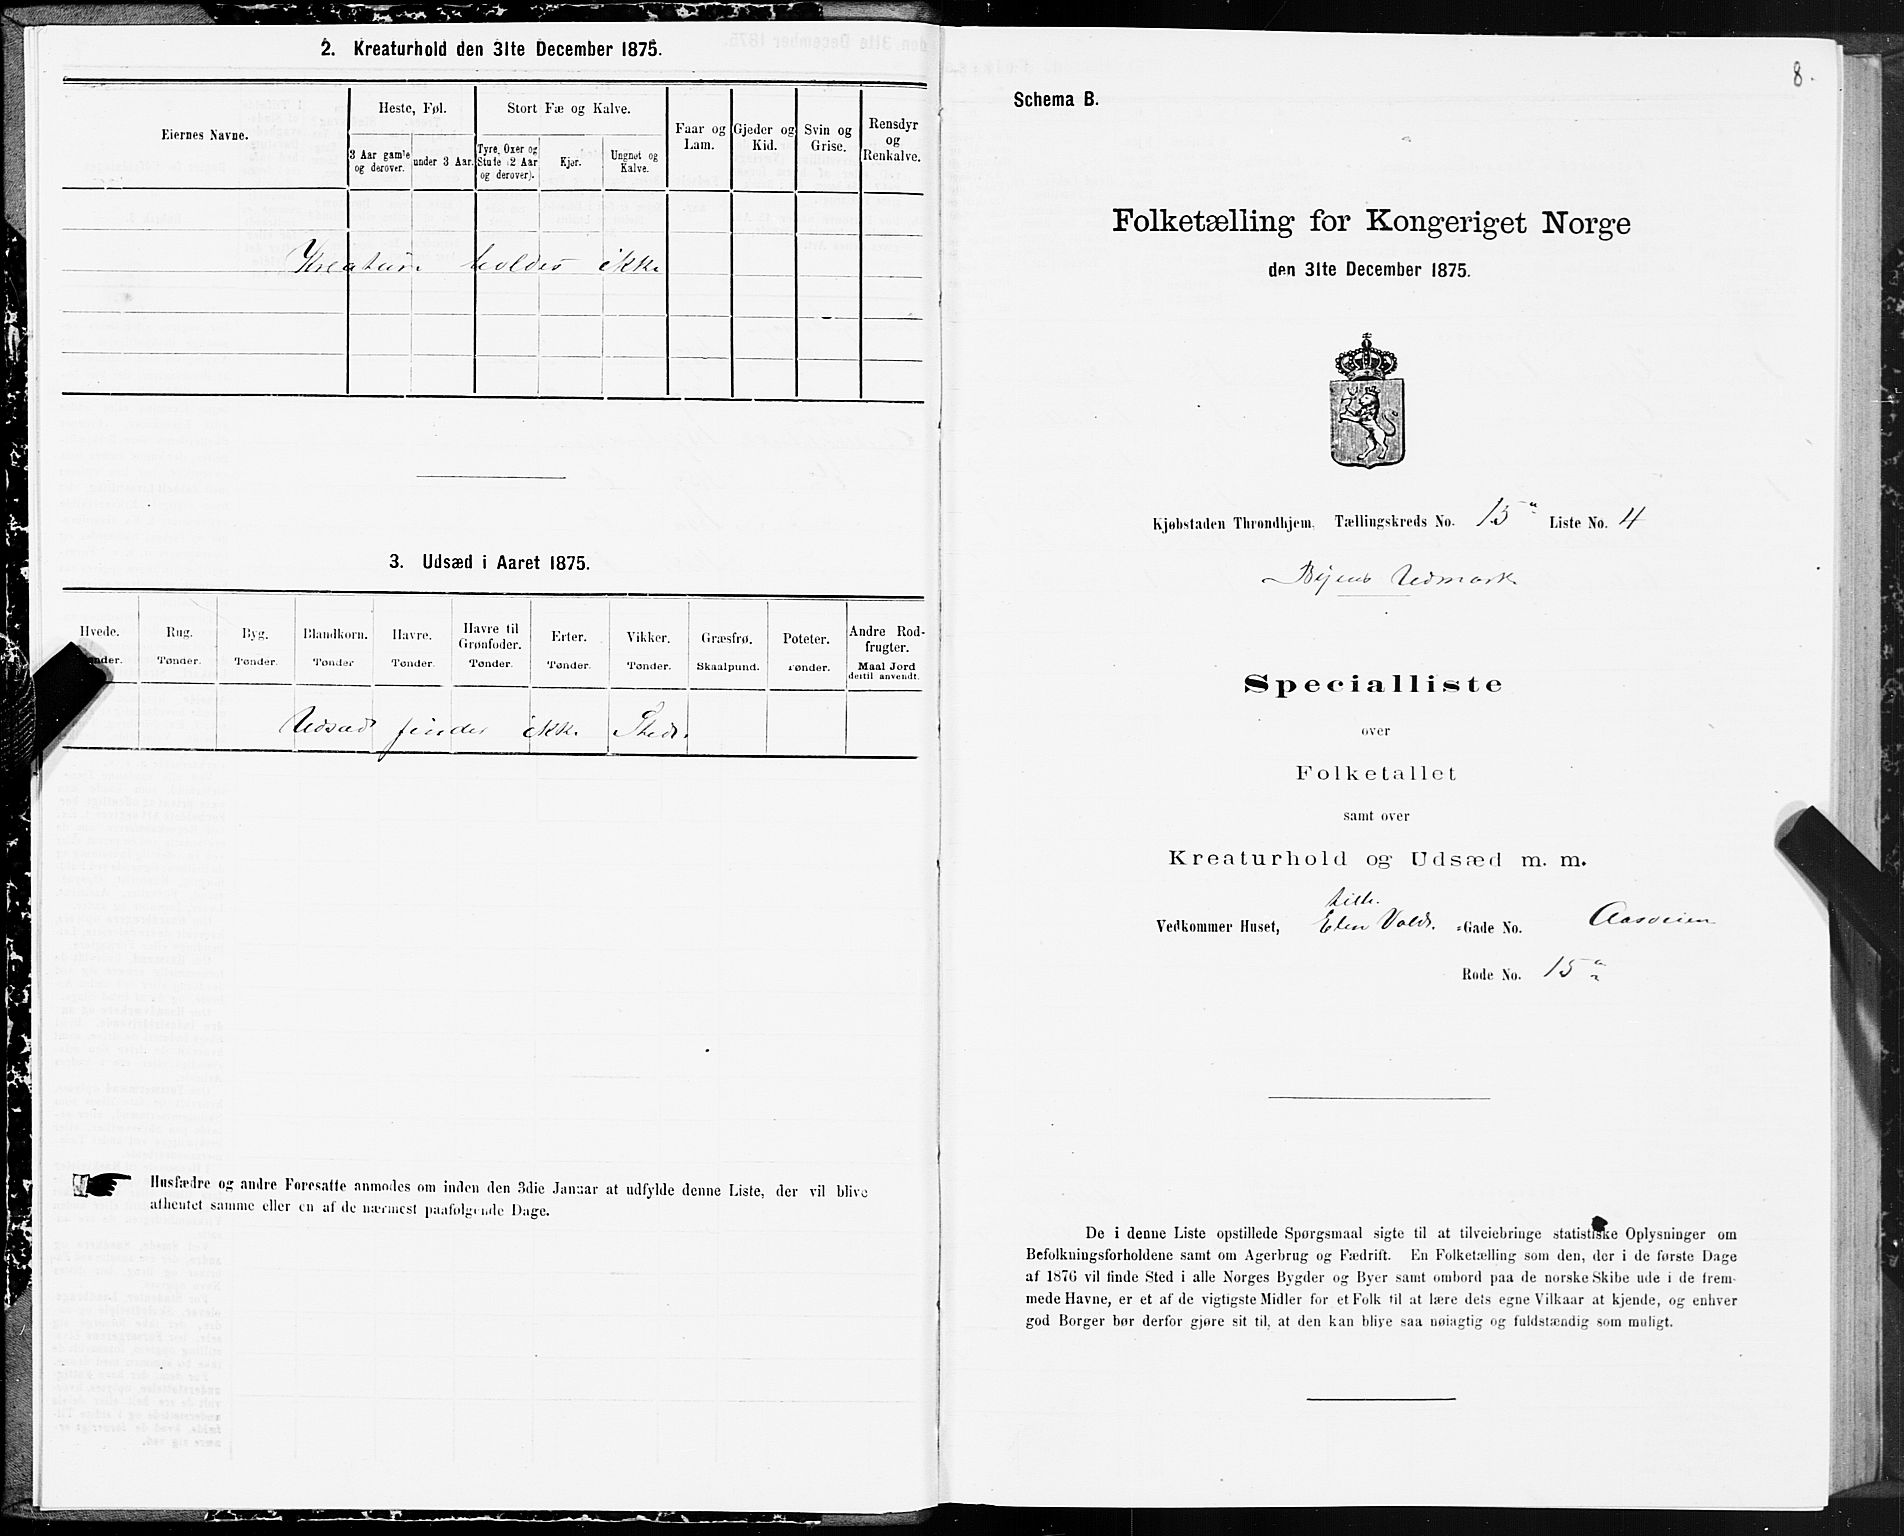 2. Kreaturhold den 31te December 1875.
Eiernes Navne.
Heste, Føl.
Stort Fæ og Kalve.
3 Aar gamle og derover.
under 3 Aar.
Tyre, Oxer og Stude (2 Aar og derover).
Kjør.
Ungnøt og Kalve.
Faar og Lam.
Gjeder og Kid.
Svin og Grise.
Rensdyr og Renkalve.
Kreature holdes ikke
3. Udsæd i Aaret 1875.
Hvede. Tønder.
Rug. Tønder.
Byg. Tønder.
Blandkorn. Tønder
Havre. Tønder.
Havre til Grønfoder. Tønder.
Erter. Tønder.
Vikker. Tønder.
Græsfrø. Skaalpund.
Poteter. Tønder.
Andre Rodfrugter. Maal Jord dertil anvendt.
Udsæd finder ikke Sted.
Husfædre og andre Foresatte anmodes om inden den 3die Januar at udfylde denne Liste, der vil blive
afhentet samme eller en af de nærmest paafølgende Dage.
8.
Schema B.
Folketælling for Kongeriget Norge
den 31te December 1875.
Kjøbstaden Throndhjem. Tællingskreds No. 15a Liste No. 4
Byens Udmark
Specialliste
over
Folketallet
samt over
Kreaturhold og Udsæd m. m.
lille
Vedkommer Huset, Gade No. Aasveien
Rode No. 15a
De i denne Liste opstillede Spørgsmaal sigte til at tilveiebringe statistiske Oplysninger om
Befolkningsforholdene samt om Agerbrug og Fædrift. En Folketælling som den, der i de første Dage
af 1876 vil finde Sted i alle Norges Bygder og Byer samt ombord paa de norske Skibe ude i de frem-
mede Havne, er et af de vigtigste Midler for et Folk til at lære dets egne Vilkaar at kjende, og enhver
god Borger bør derfor gjøre sit til, at den kan blive saa nøiagtig og fuldstændig som muligt.